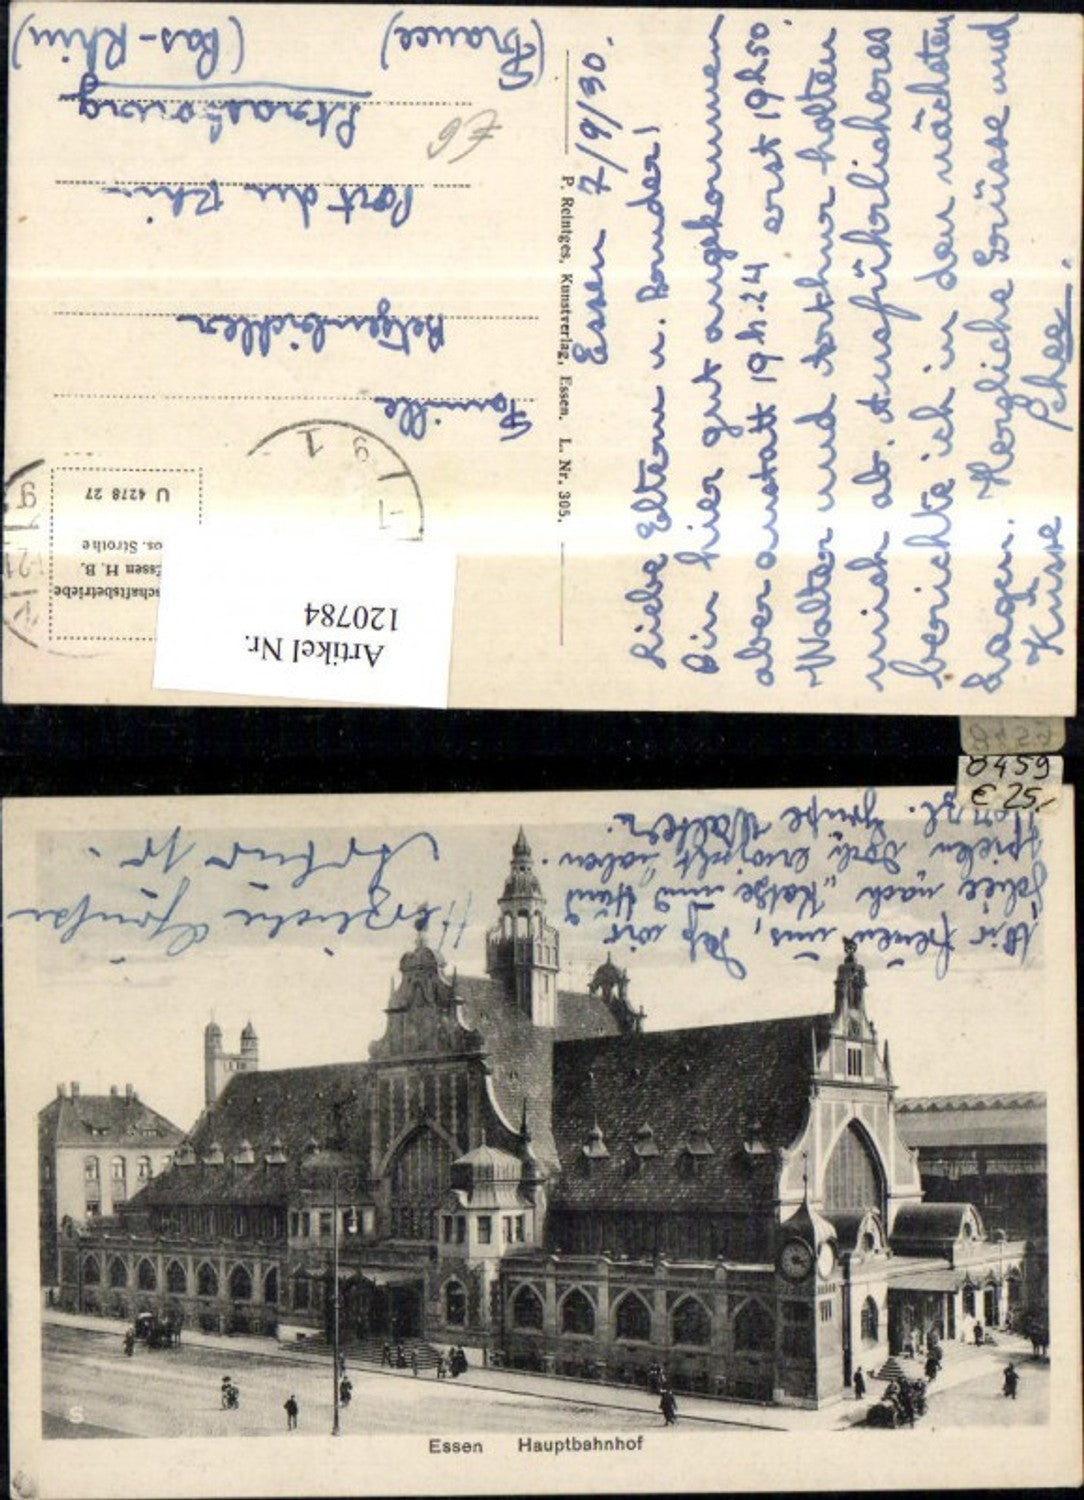 Essen 7/9/30.
Liebe Eltern u. Bruder!
Bin hier gut angekommen
aber anstatt 19h.24 erst 19h50.
Walter und Arthur holten
mich ab. Ausführlicheres
berichte ich in den nächsten
Tagen. Herzliche Grüsse und
Küsse
P. Reintges, Kunstverlag, Essen. L. Nr. 305.
Famille
Port du Rhin
Strasbourg
(Bas-Rhin)
(France)
U 4278 27
os. Strothe
Essen H. B.
schaftsbetriebe
Artikel Nr.
120784
0459
€ 25,-
Wir freuen uns, daß wir
nach "Katze und Hund
spielen
Herzl. Grüße Walter.
Herzliche Grüße
Arthur jr.
Essen Hauptbahnhof